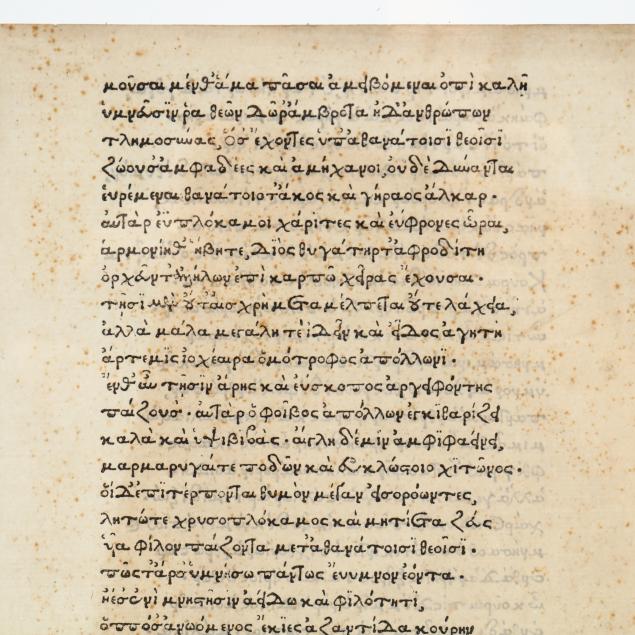 μοῦσαι μέν θ' ἅμα πᾶσαι ἀμειβόμεναι ὀπὶ καλῆ
ὑμνεῦσίν ῥα θεῶν δῶρ' ἄμβροτα ἠδ' ἀνθρώπων
τλημοσύνας, ὅσ' ἔχοντες ὑπ' ἀθανάτοισι θεοῖσι
ζώουσ' ἀμφαδέες καὶ ἀμήχανοι, οὐδὲ δύνανται
εὑρέμεναι θανάτοιό τ' ἄκος καὶ γήραος ἄλκαρ·
αὐτὰρ ἐϋπλόκαμοι χάριτες καὶ ἐΰφρονες ὧραι,
ἁρμονίη θ' ἥβη τε, διὸς θυγάτηρ τ' ἀφροδίτη
ὀρχεῦντ' ἀλλήλων ἐπὶ καρπῶ χεῖρας ἔχουσαι·
τῆσι μὲν οὔτ' αἰσχρὴ μεταμέλπεται οὔτ' ἐλάχεια,
ἀλλὰ μάλα μεγάλη τε ἰδεῖν καὶ εἶδος ἀγητὴ
ἄρτεμις ἰοχέαιρα ὁμότροφος ἀπόλλωνι·
ἔνθ' αὖ τῆσιν ἄρης καὶ ἐΰσκοπος ἀργειφόντης
παίζουσ'· αὐτὰρ ὁ φοῖβος ἀπόλλων ἐγκιθαρίζει
καλὰ καὶ ὕψι βιβάς· αἴγλη δέ μιν ἀμφιφαείνει,
μαρμαρυγαί τε ποδῶν καὶ εὐκλώστοιο χιτῶνος·
οἱ δ' ἐπιτέρπονται θυμὸν μέγαν εἰσορόωντες,
λητώ τε χρυσοπλόκαμος καὶ μητίετα ζεὺς
υἷα φίλον παίζοντα μετ' ἀθανάτοισι θεοῖσι·
πῶς τάρ σ' ὑμνήσω πάντως εὔυμνον ἐόντα·
ἠέ σ' ἐνὶ μνηστῆσιν ἀείδω καὶ φιλότητι,
ὁππόσ' ἀνωόμενος ἔκιες ἀζαντίδα κούρην